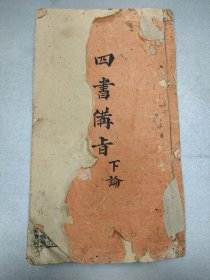 四書備旨
下論